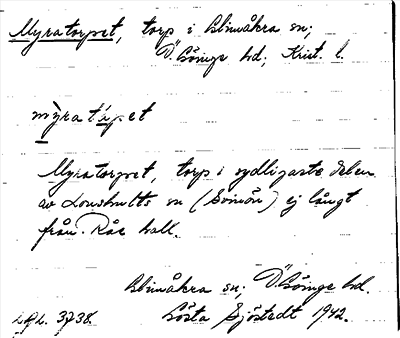 Myratorpet, torp i Glimåkra sn;
Ö. Göinge hd; Krist. l.
myratȧrpet
Myratorpet, torp i sydligaste delen
av Lönshults by (Svinön) ej långt
från Råe hall.
Glimåkra sn; Ö. Göinge hd.
Gösta Sjöstedt 1942.
LAL. 3738.